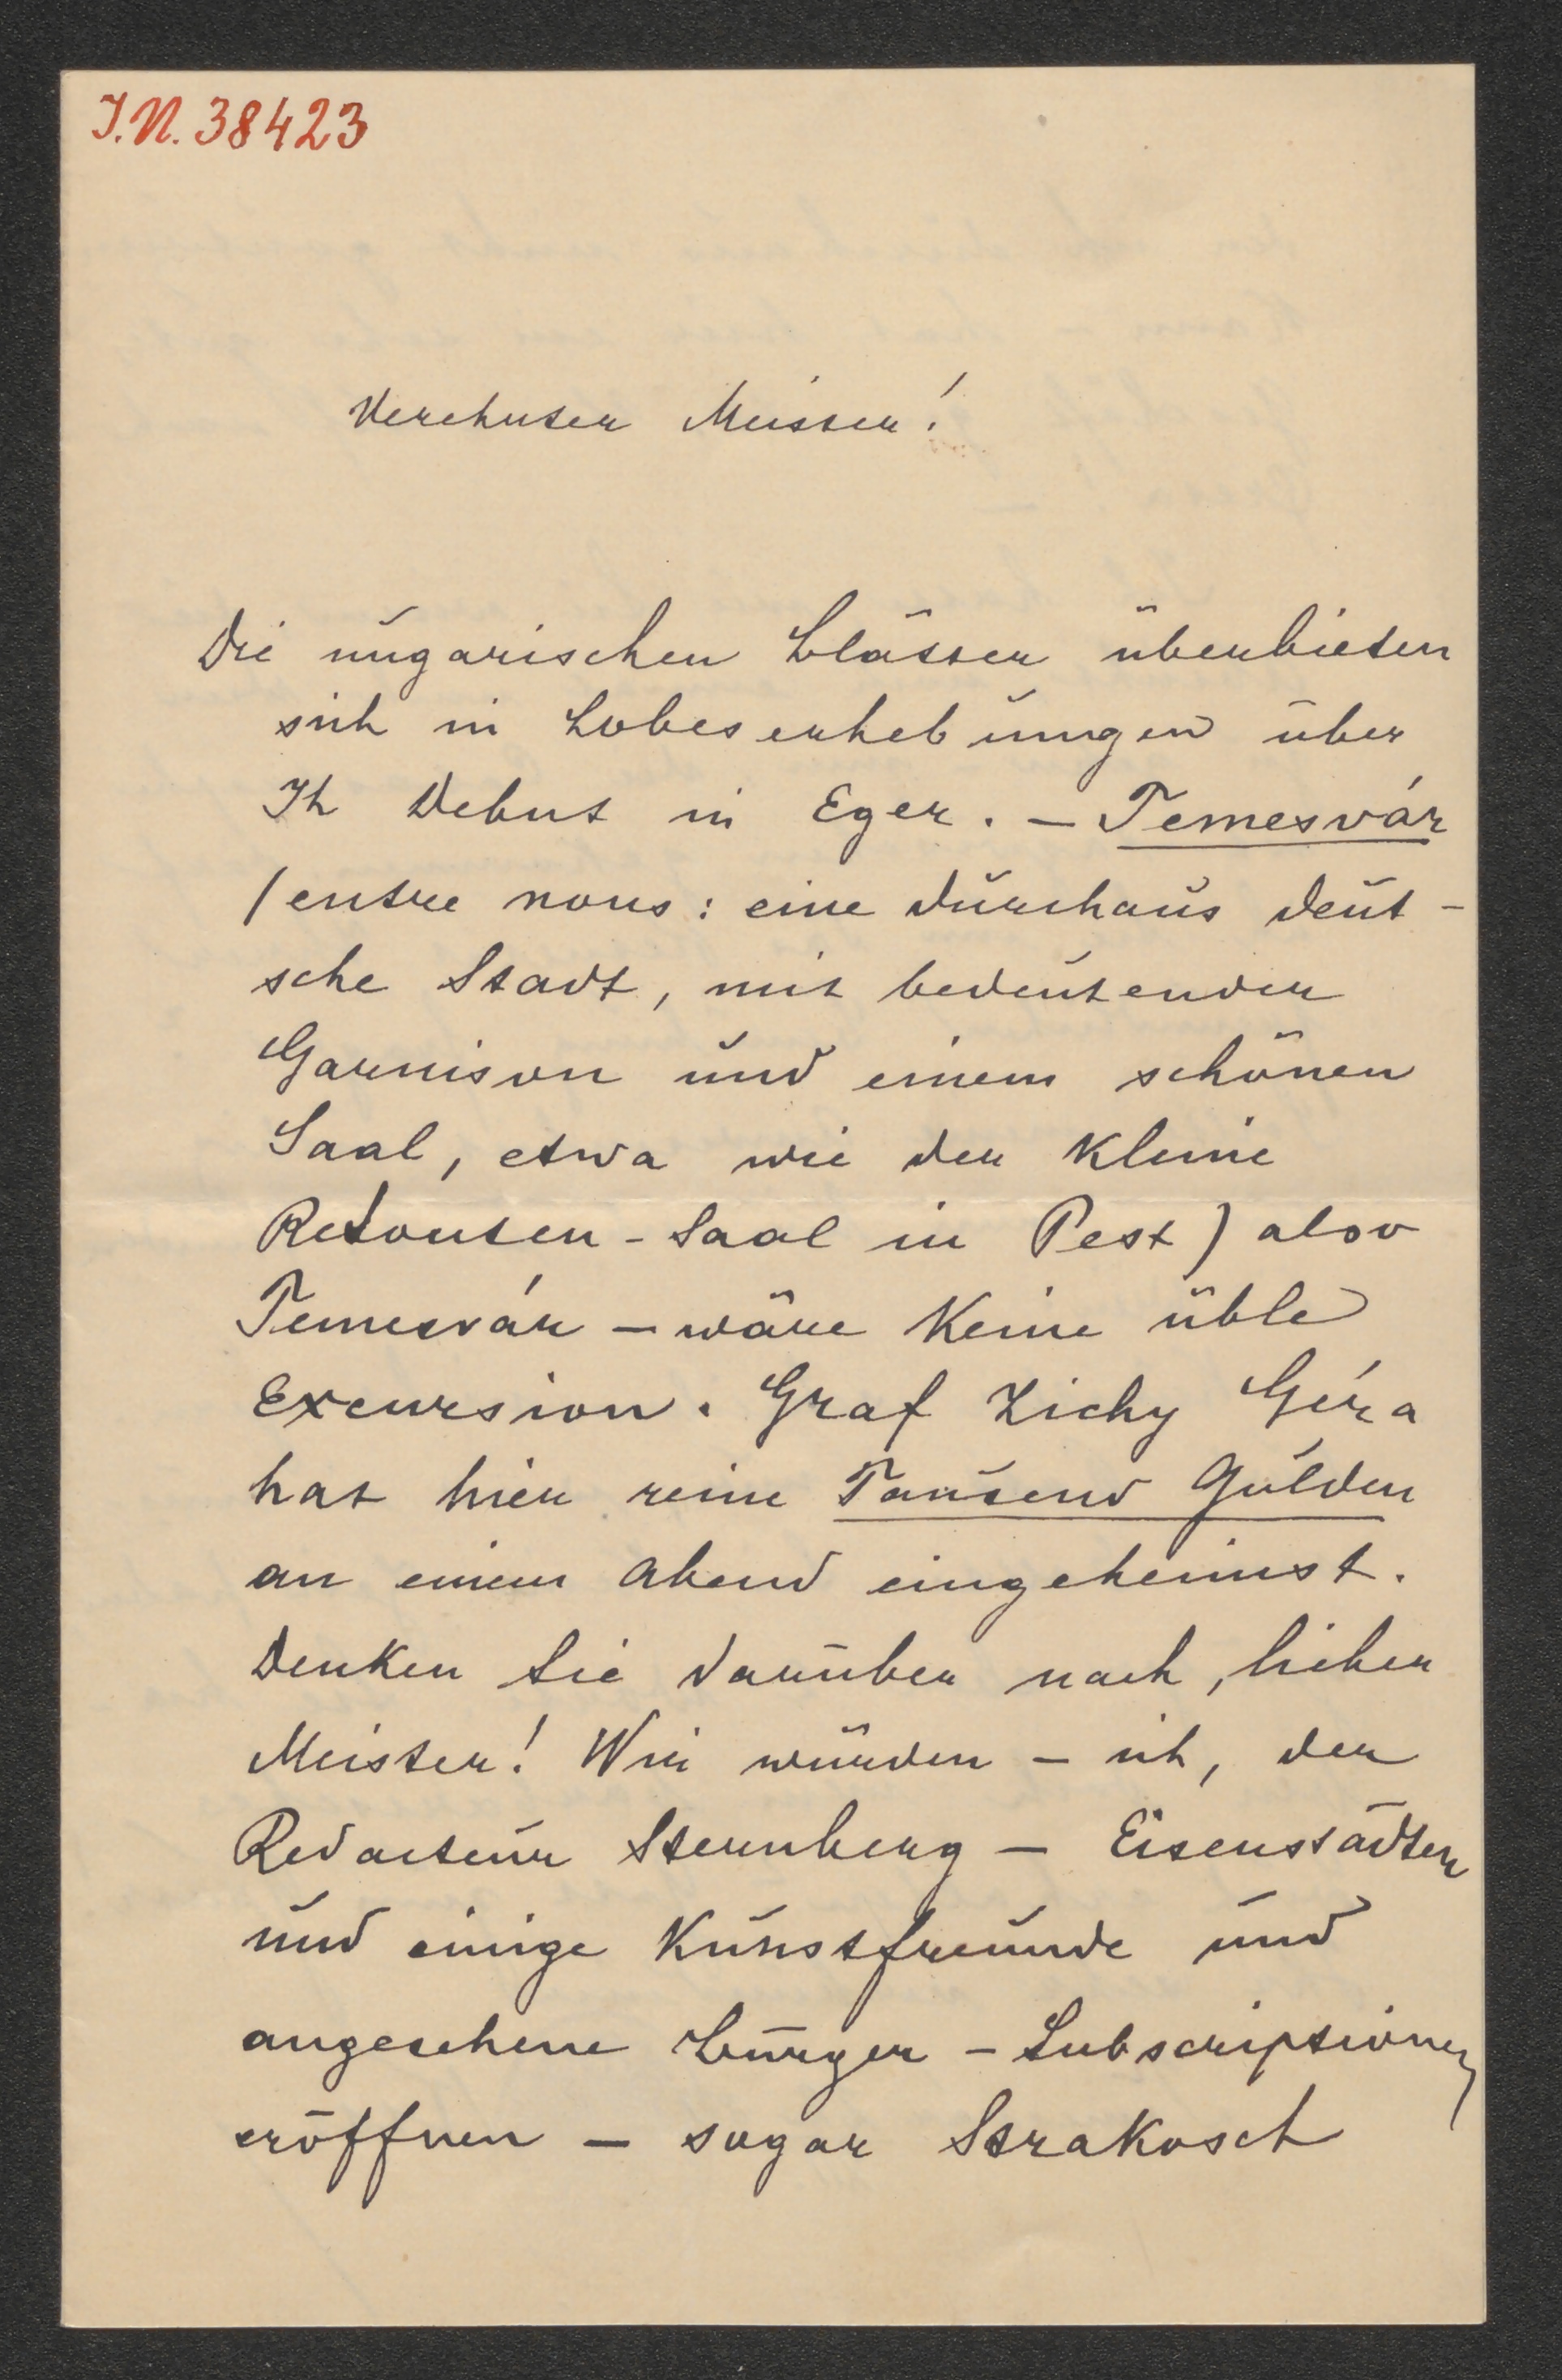 I.N. 38423
Verehrter Meister!
Die ungarischen Blätter überbieten
sich in Lobeserhebungen über
Ih Debut in Eger. – Temesvár
(entre nous: eine durchaus deut-
sche Stadt, mit bedeutender
Garnison und einem schönen
Saal, etwa wie der kleine
Redouten-Saal in Pest) also
Temesvár – wäre keine üble
Excursion. Graf Zichy Géza
hat hier reine Tausend Gulden
an einem Abend eingeheimst.
Denken Sie darüber nach, lieber
Meister! Wir würden – ich, der
Redacteur Sternberg – Eisenstädter
und einige Kunstfreunde und
angesehene Bürger – Subscriptionen
eröffnen – sogar Strakosch